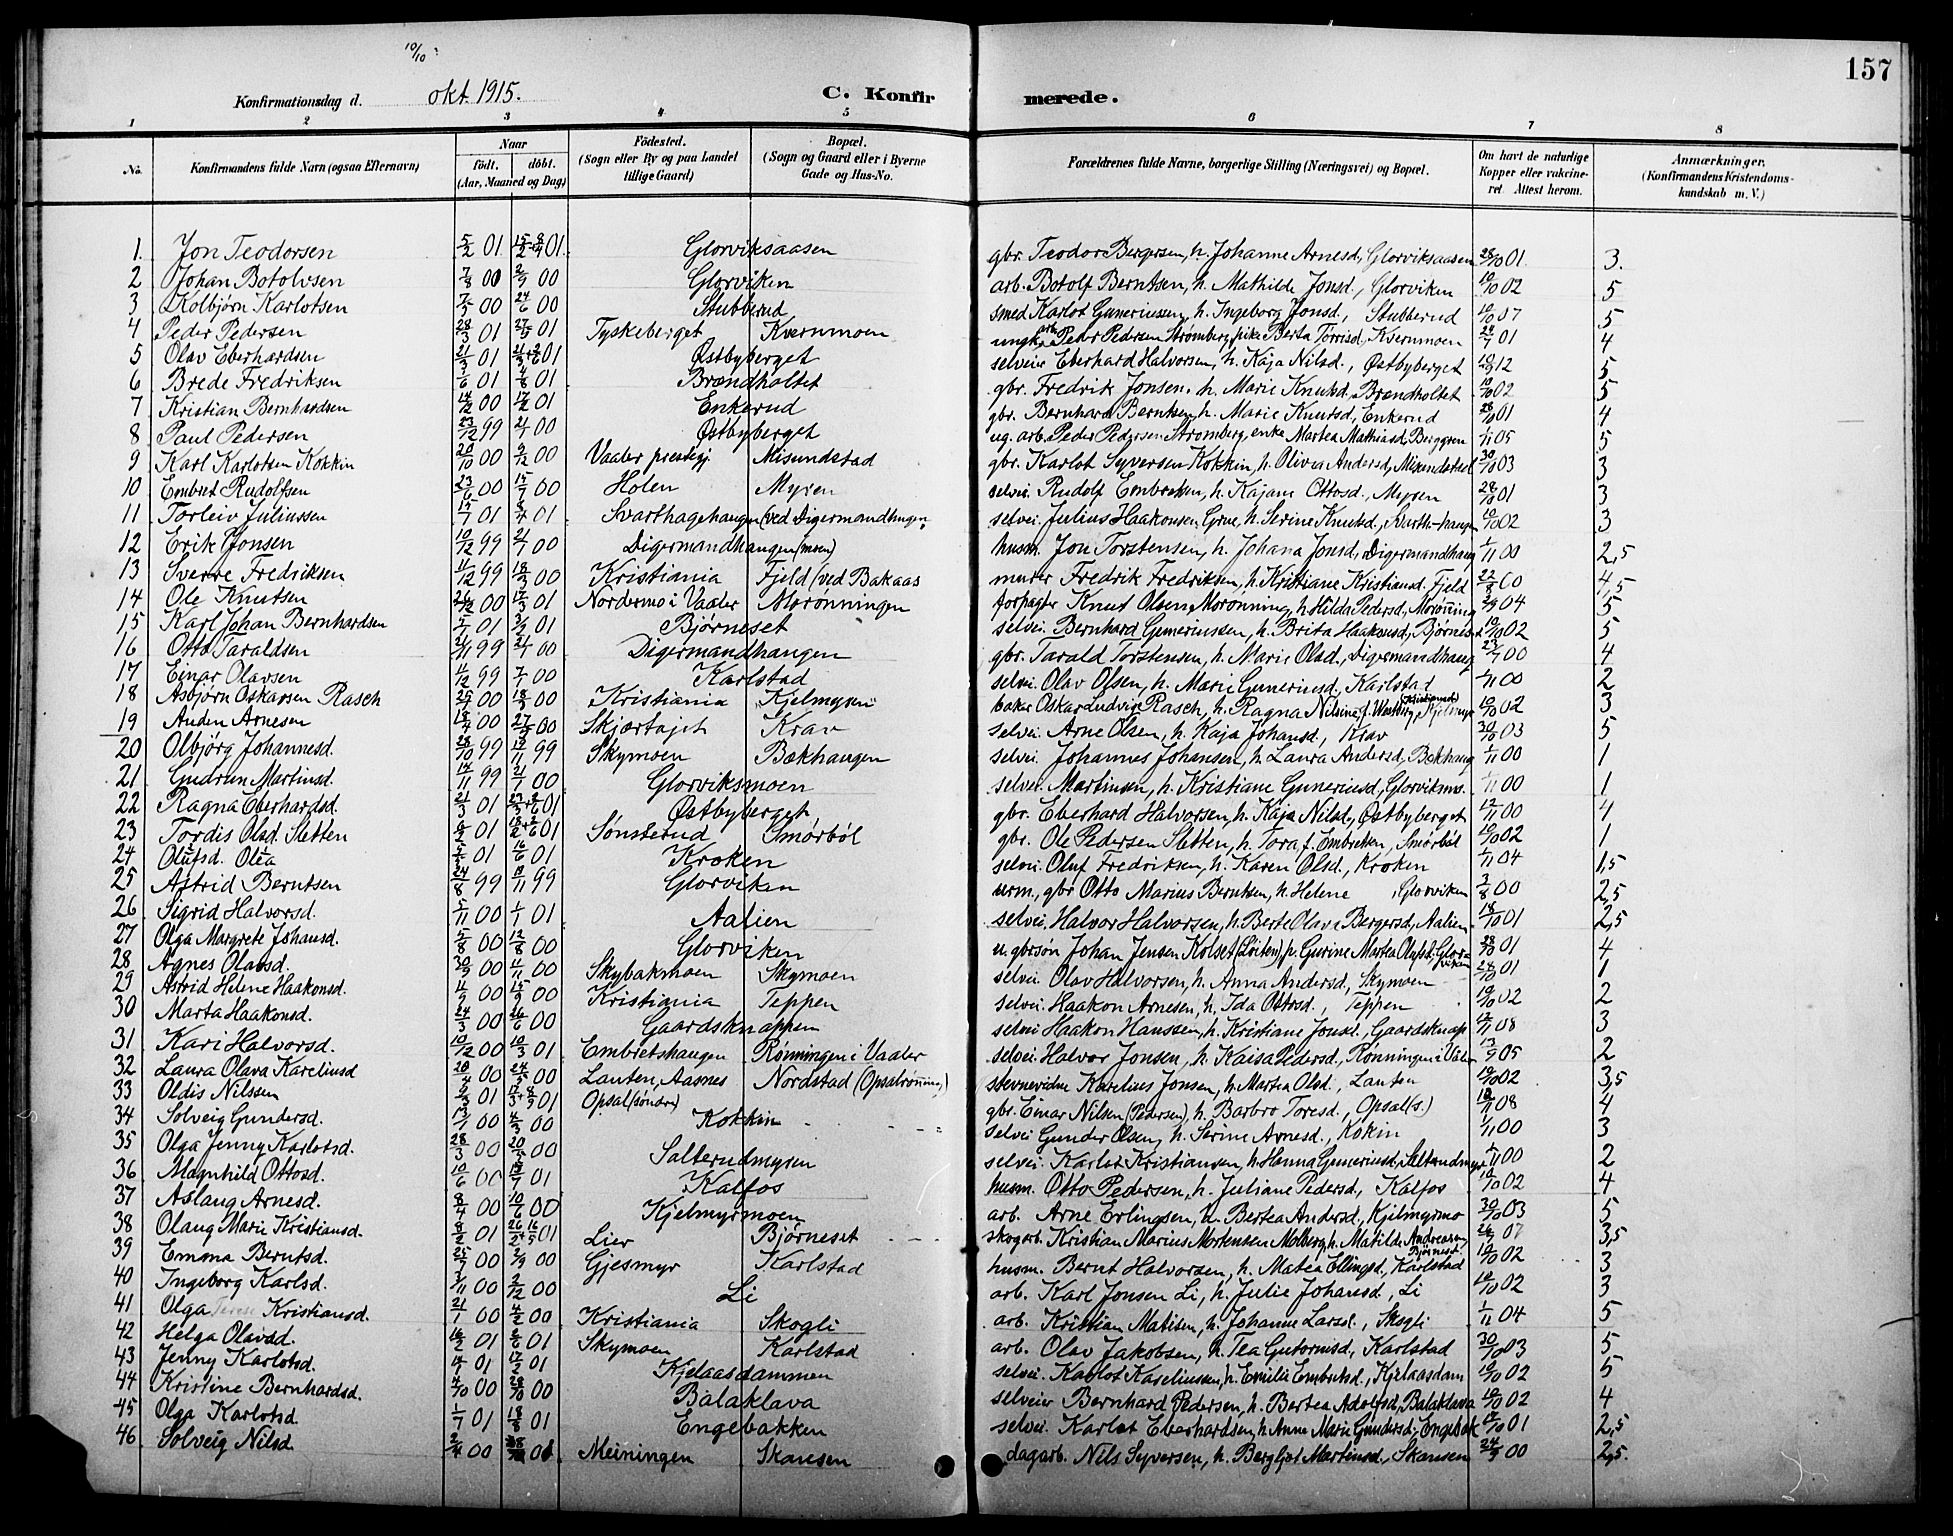 157
10/10
Konfirmationsdag d. okt. 1915.
C. Konfir merede.
1 2 3 4 5 6 7 8
No.
Konfirmandens fulde Navn (ogsaa Efternavn)
Naar
födt. döbt.
(Aar, Maaned og Dag)
Födested.
(Sogn eller By og paa Landet
tillige Gaard)
Bopæl.
(Sogn og Gaard eller i Byerne
Gade og Hus-No.
Forældrenes fulde Navne, borgerlige Stilling (Næringsvei) og Bopæl.
Om havt de naturlige
Kopper eller vakcine-
ret. Attest herom.
Anmærkninger.
(Konfirmandens Kristendoms-
kundskab m. V.)
1. Jon Teodorsen 5/2 01 Glorviksaasen gbr. Teodor Bergersen, h. Johanne Arnesd., Glorviksaasen 28/10 01. 3.
2 Johan Botolvsen 7/8 00 2/9 00 Glorviken arb. Botolf Berntsen, h. Mathilde Jonsd., Glorviken 10/10 02 5
3 Kolbjørn Karlotsen 7/5 00 24/6 00 Stubberud smed Karlot Guneriussen, h. Ingeborg Jonsd., Stubberud 10/10 07 5
4 Peder Pedersen 28/3 01 27/5 01 Tyskeberget Kvernmoen ungk. arb. Peder Pedersen Strømberg, pike Berta Torrisd., Kvernmoen 01 4
5 Olav Eberhardsen 21/3 01 Østbyberget selveier Eberhard Halvorsen, h. Kaja Nilsd., Østbyberget 12 5
6 Brede Fredriksen 3/6 01 4/8 01 Brændholtet gbr. Fredrik Jonsen, h. Marie Knutsd., Brændholtet 10/10 02 5
7 Kristian Bernhardsen 14/12 00 17/2 01 Enkerud gbr. Bernhard Berntsen, h. Marie Knutsd., Enkerud 28/10 01 4
8 Paul Pedersen 23/12 99 2/1 00 Østbyberget ug. arb. Peder Pedersen Strømberg, enke Martea Mathiasd., Berggren 1/11 05 5
9 Karl Karlotsen Kokkin 20/10 00 9/12 00 Vaaler prestegj. Misundstad gbr. Karlot Syversen Kokkin, h. Olivia Andersd., Misundstad 30/10 03 3
10 Embret Rudolfsen 23/6 00 15/7 00 Holen Myren selvei. Rudolf Embretsen, h. Kajane Ottosd., Myren 28/10 01 3
11 Torleiv Juliussen 01 01 Svarthagehaugen (ved Digermandhaugen) selvei. Julius Haakonsen Grue, h. Serine Knutsd., Svarth-haugen 10/10 02 3
12 Erik Jonsen 10/12 99 2/1 00 Digermandhaugen (moen) husm. Jon Torstensen, h. Johana Jonsd., Digermandhaug 1/11 00 2,5
13 Sverre Fredriksen 11/12 99 18/3 00 Kristiania Fjeld (ved Bakaas murer Fredrik Fredriksen, h. Kristiane Kristiansd. Fjeld 22/8 00 4,5
14 Ole Knutsen 26/12 00 17/3 01 Nordermo i Vaaler Morønningen forpagter Knut Olsen Morønning, h. Hilda Pedersd., Morønning 04 5
15 Karl Johan Bernhardsen 5/1 01 3/9 01 Bjørneset selvei. Bernhard Guneriussen, h. Brita Haakonsd., Bjørneset 10/10 02 5
16 Otto Taraldsen 21/11 99 2/1 00 Digermandhaugen gbr. Tarald Torstensen, h. Marie Olsd., Digermandhaug 00 4
17 Einar Olavsen 11/12 99 7/1 00 Karlstad selvei. Olav Olsen, h. Marie Guneriusd., Karlstad 1/11 00 2
18 Asbjørn Oskarsen Rasch 00 18/3 00 Kristiania Kjelmyren baker Oskar Ludvig Rasch, h. Ragna Nilsine f. Westberg (Kristiania), Kjelmyr 10/10 02 3
19 Auden Arnesen 18/4 00 27/5 00 Skjærtajet Krav selvei. Arne Olsen, h. Kaja Johansd., Krav 30/10 03 5
20 Olbjørg Johannesd. 28/10 99 12/11 99 Skymoen Bækhaugen selvei. Johannes Johansen, h. Laura Andersd., Bækhaug 1/11 00 1
21 Gudrun Martinsd. 14/11 99 2/1 00 Glorviksmoen selvei. Martinsen, h. Kristiane Guneriusd., Glorviksms. 1/11 00 1
22 Ragna Eberhardsd. 21/3 01 Østbyberget gbr. Eberhard Halvorsen, h. Kaja Nilsd., Østbyberget 12/11 00 4
23 Tordis Olsd. Sletten 01 Sønsterud Smörböl gbr. Ole Pedersen Sletten, h. Tora f. Embretsen, Smörböl 10/10 02 1
24 Olufsd. Olea 01 16/6 01 Kroken selvei. Oluf Fredriksen, h. Karen Olsd., Kroken 1/11 04 1,5
25 Astrid Berntsen 24/8 99 19/11 99 Glorviken urm., gbr Otto Marius Berntsen, h. Helene , Glorviken 3/8 00 2,5
26 Sigrid Halvorsd. 5/11 00 1/1 01 Aalien selvei. Halvor Halvorsen, h. Berte Olava Bergersd., Aalien 18/10 01 2,5
27 Olga Margrete Johansd. 5/8 00 12/8 00 Glorviken u. gbrsön Johan Jensen Kolset (Löiten), p. Gurine Martea Olafsd., Glorviken 28/10 01 4
28 Agnes Olavsd. 30/9 00 4/11 00 Skybakmoen Skymoen selvei. Olav Halvorsen, h. Anna Andersd., Skymoen 24/10 01 1
29 Astrid Helene Haakonsd. 00 15/9 00 Kristiania Teppen selvei. Haakon Arnesen, h. Ida Ottosd., Teppen 19/10 02 2
30 Marta Haakonsd. 24/3 00 26/6 00 Gaardsknappen selvei Haakon Hanssen, h. Kristiane Jonsd., Gaardsknap 12/11 08 3
31 Kari Halvorsd. 10/12 00 10/3 01 Embretshaugen Rønningen i Vaaler selvei. Halvor Jonsen, h. Kaisa Pedersd., Rønningen i Vaaler 13/9 05 2
32 Laura Olava Kareliusd 20/4 00 24/5 00 Lauten, Aasnes Nordstad (Opsalrønning) stevnevidne Karelius Jonsen, h. Martea Olsd., Lauten 10/10 02 3,5
33 Oldis Nilssen 01 Opsal (söndre) gbr. Einar Nilsen (Pedersen), h. Barbro Toresd., Opsal (s.) 08 4
34 Solveig Gundersd. 13/1 00 4/3 00 Kokkin selvei Gunder Olsen, h. Serine Arnesd., Kokin 1/11 00 3
35 Olga Jenny Karlotsd. 28/3 00 20/5 00 Salterudmyren selvei. Karlot Kristiansen, h. Hanna Guneriusd., Salterudmyr 1/11 00 2
36 Magnhild Ottosd. 10/6 00 01 Kalfos husm. Otto Pedersen, h. Juliane Pedersd., Kalfos 10/10 02 4
37 Aslaug Arnesd. 8/4 00 10/6 00 Kjelmyrmoen arb. Arne Erlingsen, h. Bertea Andersd., Kjelmyrmo 30/10 03 5
38 Olaug Marie Kristiansd. 8/2 01 01 Lier Björneset skogarb. Kristian Marius Mortensen Molberg, h. Matilde Andreasen, Björneset 07 3,5
39 Emma Berntsd. 25/7 00 2/9 00 Gjesmyr Karlstad husm. Bernt Halvorsen, h. Matea Ellingsd., Karlstad 10/10 02 3
40 Ingeborg Karlsd. 3/11 00 2/12 00 Li arb. Karl Jonsen Li, h. Julie Johansd., Li 10/10 02 3
41 Olga Terese Kristiansd. 21/1 00 4/2 00 Kristiania Skogli arb. Kristian Matisen, h. Johanne Larsd., Skogli 1/11 04 5
42 Helga Olavsd. 16/2 01 01 Skymoen Karlstad arb. Olav Jakobsen, h. Tea Gutormsd., Karlstad 30/10 03 5
43 Jenny Karlotsd. 01 17/2 01 Kjelaasdammen selvei. Karlot Kareliussen, h. Emilie Embretsd., Kjelaasdam 10/10 02 5
44 Kristine Bernhardsd. 4/10 00 28/10 00 Balaklava selveier Bernhard Pedersen, h. Bertea Adolfsd., Balaklava 10/10 02 4
45 Olga Karlotsd 1/7 01 18/8 01 Engebakken selvei. Karlot Eberhardsen, h. Anne Marie Gundersd., Engebak 01 2,5
46 Solveig Nilsd. 2/4 00 Meiningen Skansen dagarb. Nils Syversen, h. Bergljot Martinsd., Skansen 00 2,5.